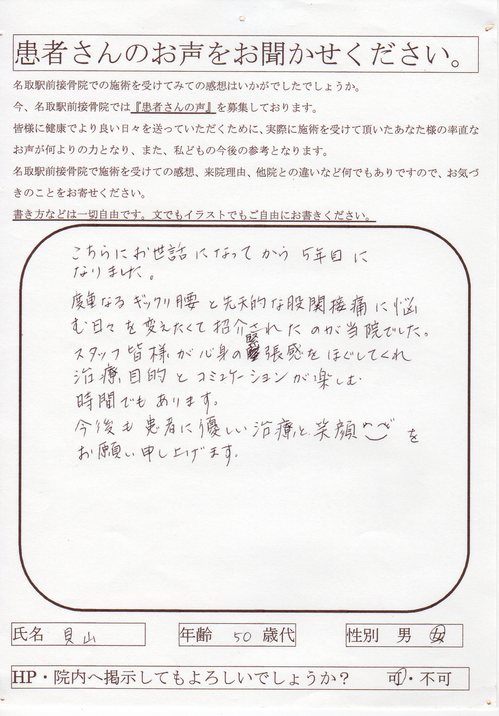 患者さんのお声をお聞かせください。
名取駅前接骨院での施術を受けてみての感想はいかがでしたでしょうか。
今、名取駅前接骨院では『患者さんの声』を募集しております。
皆様に健康でより良い日々を送っていただくために、実際に施術を受けて頂いたあなた様の率直な
お声が何よりの力となり、また、私どもの今後の参考となります。
名取駅前接骨院で施術を受けての感想、来院理由、他院との違いなど何でもありですので、お気づ
きのことをお寄せください。
書き方などは一切自由です。文でもイラストでもご自由にお書きください。
こちらにお世話になってから5年目に
なりました。
度重なるギックリ腰と先天的な股関接痛に悩
む日々を変えたくて紹介されたのが当院でした。
スタッフ皆様が心身の緊張感をほぐしてくれ
治療目的とコミュニケーションが楽しむ
時間でもあります。
今後も患者に優しい治療と笑顔を
お願い申し上げます。
氏名 貝山
年齢 50 歳代
性別 男 女
HP・院内へ掲示してもよろしいでしょうか？ 可・不可